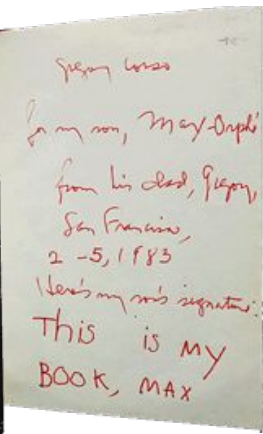 Gregory Corso
for my son, Max-Orphé
from his dad, Gregory,
San Francisco,
2-5, 1983
Here's my son's signature:
This is MY
BOOK, MAX